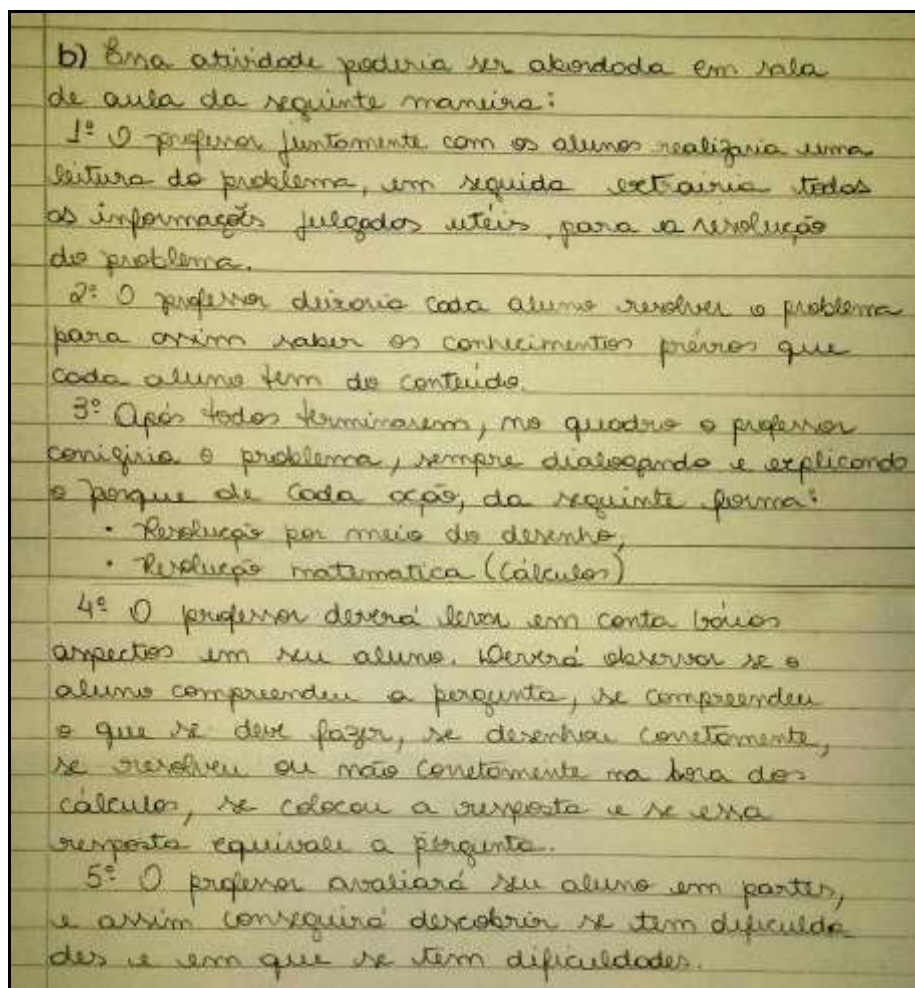 b) Essa atividade poderia ser abordada em sala
de aula da seguinte maneira:
1º O professor juntamente com os alunos realizaria uma
leitura do problema, em seguida extrairia todos
as informações julgados utéis para a resolução
do problema.
2º O professor deixaria cada aluno resolver o problema
para assim saber os conhecimentos prévios que
cada aluno tem do conteúdo.
3º Após todos terminarem, no quadro o professor
corrigiria o problema, sempre dialogando e explicando
o porque de cada ação, da seguinte forma:
• Resolução por meio do desenho,
• Resolução matematica (Cálculos)
4º O professor deverá levar em conta vários
aspectos em seu aluno. Deverá observar se o
aluno compreendeu a pergunta, se compreendeu
o que se deve fazer, se desenhou corretamente,
se resolveu ou não corretamente na hora dos
cálculos, se colocou a resposta e se essa
resposta equivale a pergunta.
5º O professor avaliará seu aluno em partes,
e assim conseguirá descobrir se tem dificulda
des e em que se tem dificuldades.